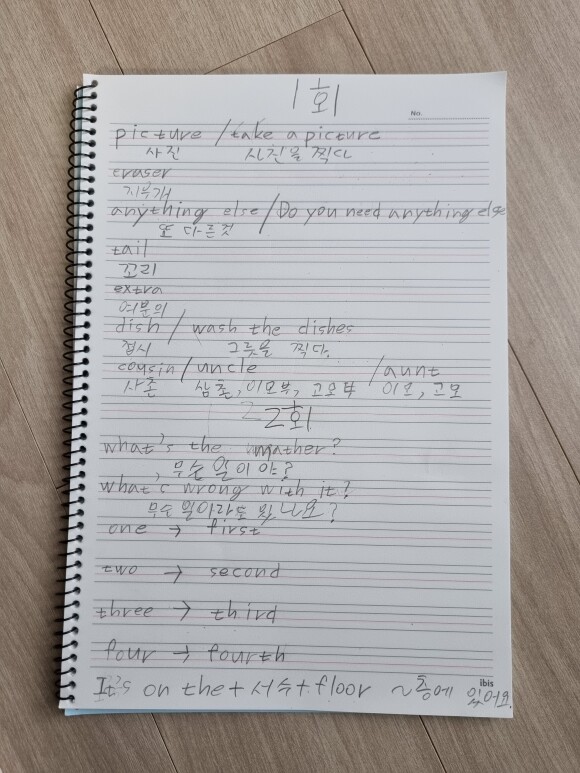 1회
No.
picture / take a picture
사진 사진을 찍다
eraser
지우개
anything else / Do you need anything else
또 다른것
tail
꼬리
extra
여분의
dish / wash the dishes
접시 그릇을 찍다.
cousin / uncle / aunt
사촌 삼촌, 이모부, 고모부 이모, 고모
2회
what's the mather?
무슨 일이야?
what's wrong with it?
무슨 일이라도 있나요?
one → first
two → second
three → third
four → fourth
ibis
It's on the + 서수 + floor ~층에 있어요.